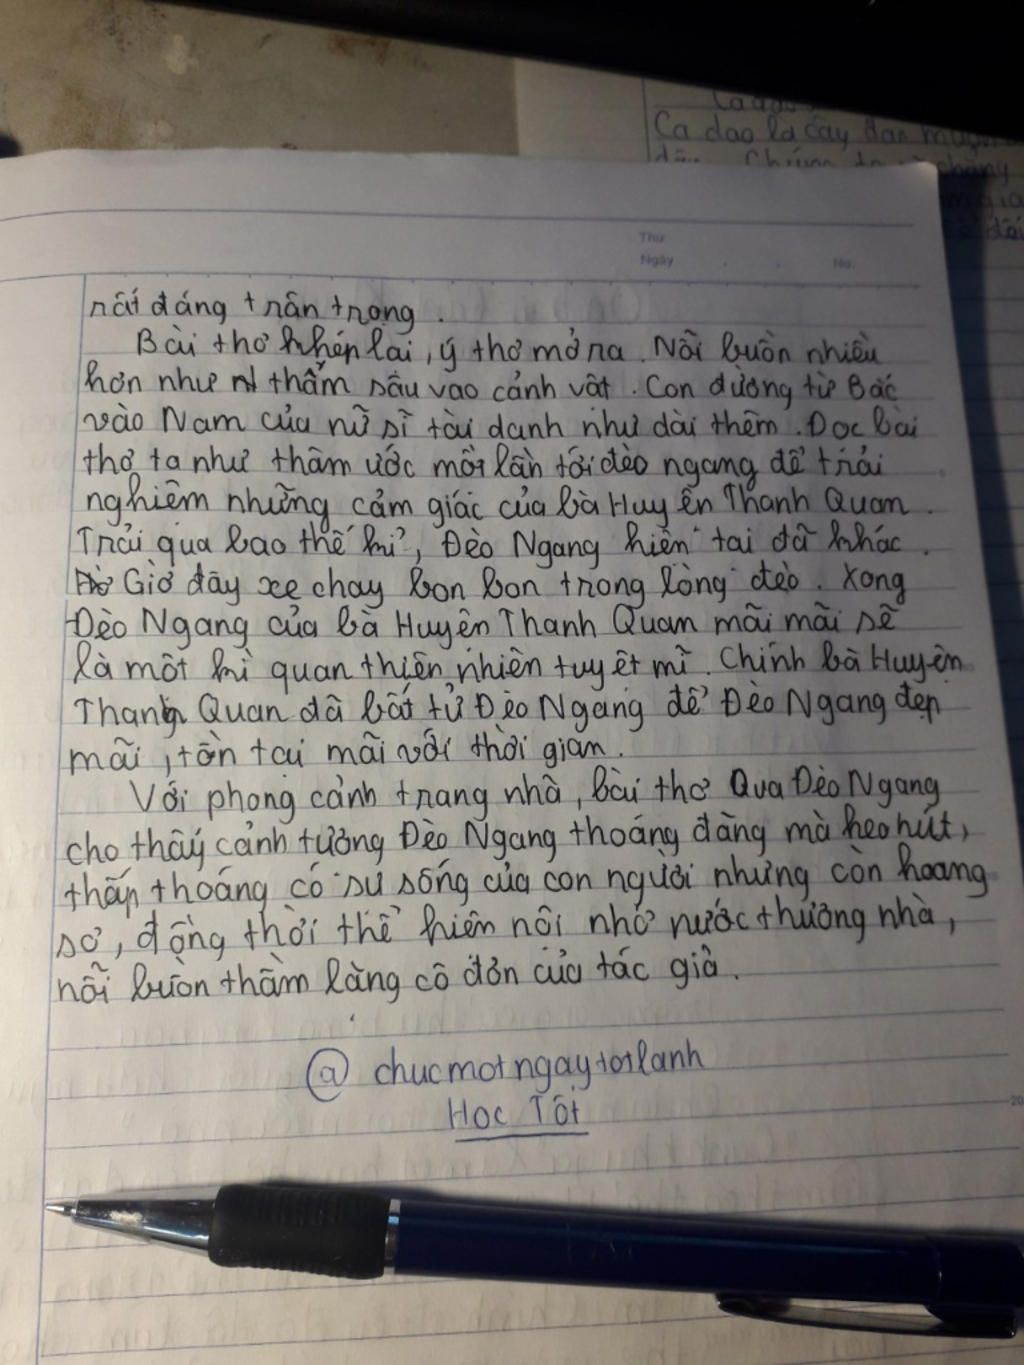 Ca dao là cây đàn muôn
chẳng
Thứ
Ngày
No.
rất đáng trân trọng.
Bài thơ khép lại, ý thơ mở ra. Nỗi buồn nhiều
hơn như thấm sâu vào cảnh vật. Con đường từ Bắc
vào Nam của nữ sĩ tài danh như dài thêm. Đọc bài
thơ ta như thầm ước một lần tới đèo ngang để trải
nghiệm những cảm giác của bà Huyện Thanh Quan.
Trải qua bao thế kỉ, Đèo Ngang hiện tại đã khác.
Giờ đây xe chạy bon bon trong lòng đèo. Xong
Đèo Ngang của bà Huyện Thanh Quan mãi mãi sẽ
là một kì quan thiên nhiên tuyệt mĩ. Chính bà Huyện
Thanh Quan đã bất tử Đèo Ngang để Đèo Ngang đẹp
mãi, tồn tại mãi với thời gian.
Với phong cảnh trang nhã, bài thơ Qua Đèo Ngang
cho thấy cảnh tượng Đèo Ngang thoáng đãng mà heo hút,
thấp thoáng có sự sống của con người nhưng còn hoang
sơ, đồng thời thể hiện nỗi nhớ nước thương nhà,
nỗi buồn thầm lặng cô đơn của tác giả.
@ chucmotngaytotlanh
Học Tốt
20